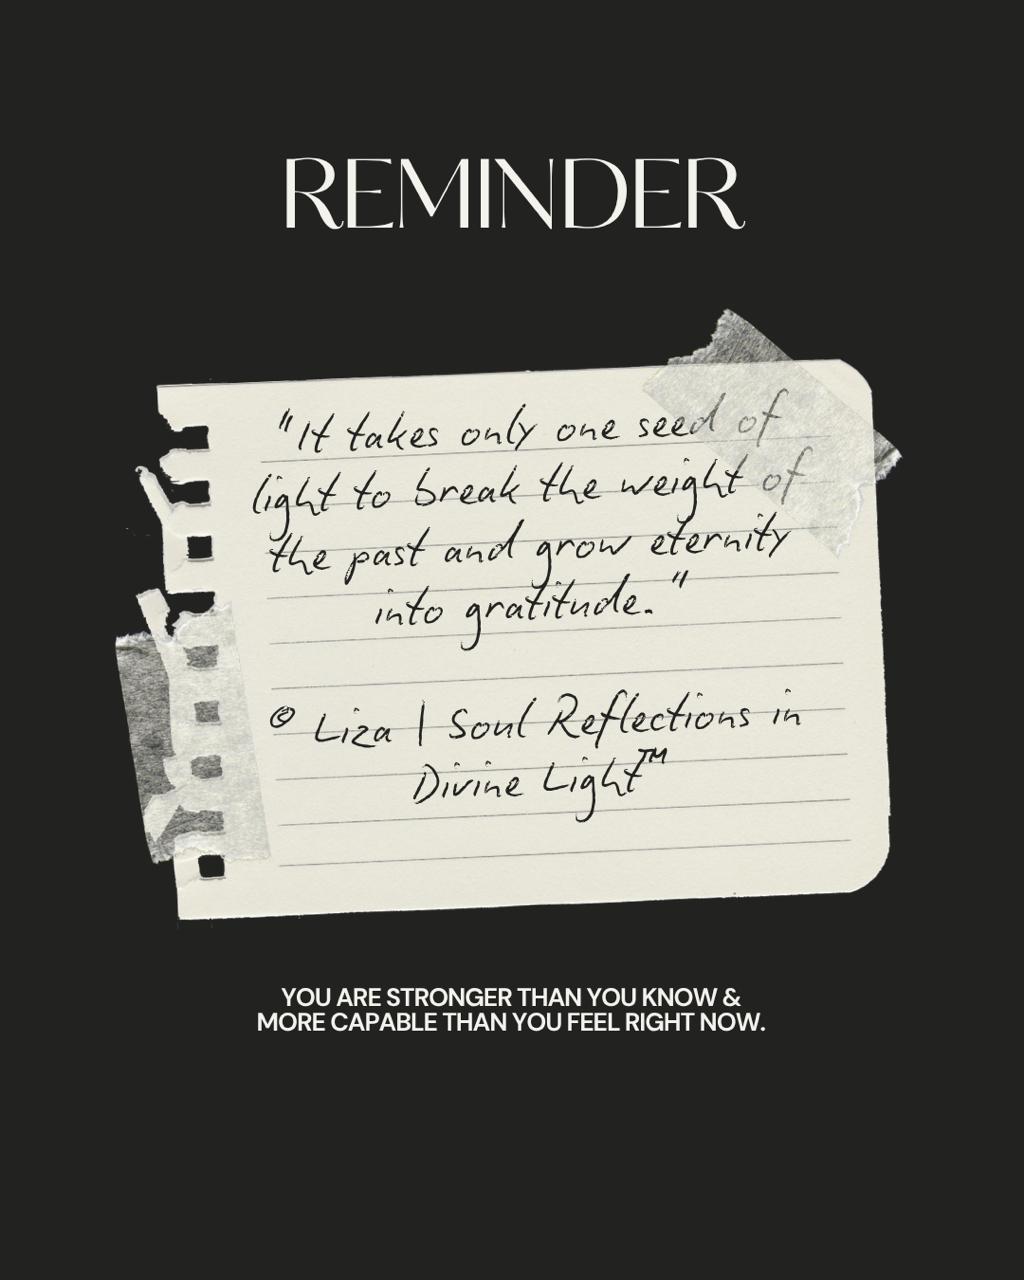 REMINDER
"It takes only one seed of
light to break the weight of
the past and grow eternity
into gratitude."
© Liza | Soul Reflections in
Divine Light™
YOU ARE STRONGER THAN YOU KNOW &
MORE CAPABLE THAN YOU FEEL RIGHT NOW.